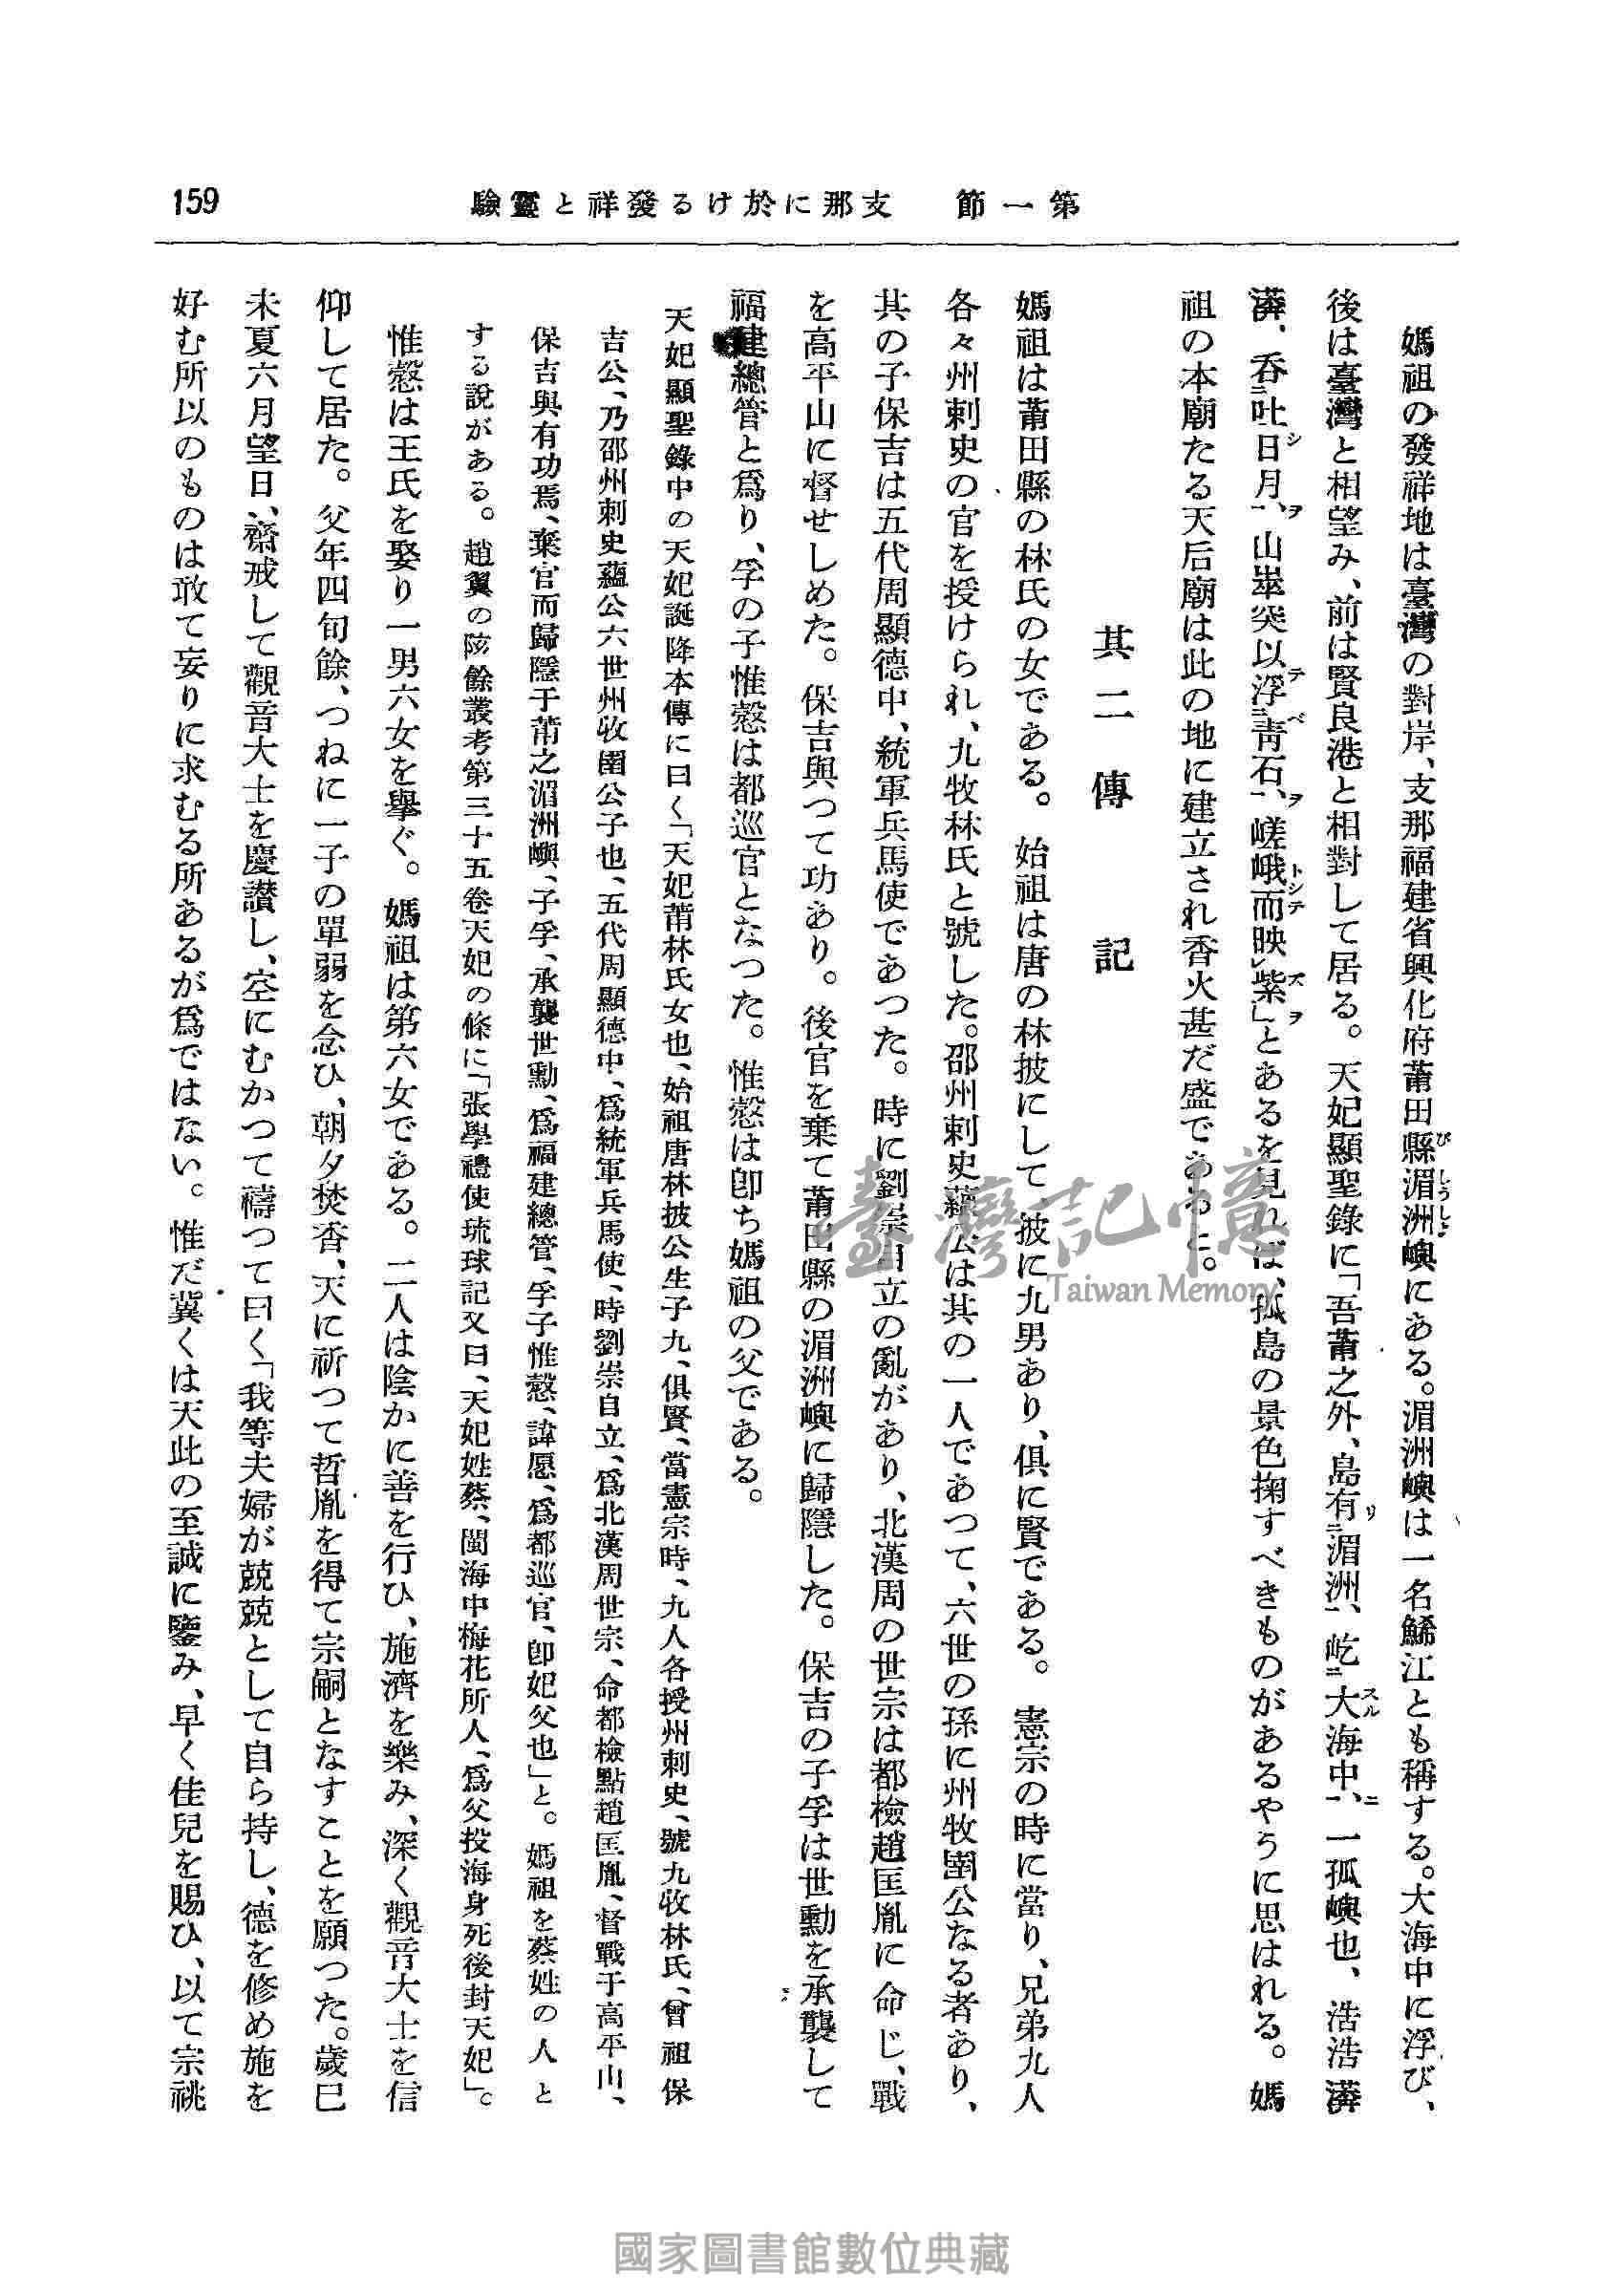 159
第一節　支那に於ける發祥と靈驗
媽祖の發祥地は臺灣の對岸、支那福建省興化府莆田縣湄洲嶼にある。湄洲嶼は一名鯑江とも稱する。大海中に浮び、
後は臺灣と相望み、前は賢良港と相對して居る。天妃顯聖錄に「吾莆之外、島有湄洲、屹大海中、一孤嶼也、浩浩漭
漭、呑吐日月、山崒突以浮靑石、嵯峨而映紫」とあるを見れば、孤島の景色掬すべきものがあるやうに思はれる。媽
祖の本廟たる天后廟は此の地に建立され香火甚だ盛であると。
其二　傳記
媽祖は莆田縣の林氏の女である。始祖は唐の林披にして、披に九男あり、俱に賢である。憲宗の時に當り、兄弟九人
各々州刺史の官を授けられ、九牧林氏と號した。邵州刺史蘊公は其の一人であつて、六世の孫に州牧圉公なる者あり、
其の子保吉は五代周顯德中、統軍兵馬使であつた。時に劉崇自立の亂があり、北漢周の世宗は都檢趙匡胤に命じ、戰
を高平山に督せしめた。保吉與つて功あり。後官を棄て莆田縣の湄洲嶼に歸隱した。保吉の子孚は世勳を承襲して
福建總管と爲り、孚の子惟慤は都巡官となつた。惟慤は卽ち媽祖の父である。
天妃顯聖錄中の天妃誕降本傳に曰く「天妃莆林氏女也、始祖唐林披公生子九、俱賢、當憲宗時、九人各授州刺史、號九收林氏、曾祖保
吉公、乃邵州刺史蘊公六世州收圉公子也、五代周顯德中、爲統軍兵馬使、時劉崇自立、爲北漢周世宗、命都檢點趙匡胤、督戰于高平山、
保吉與有功焉、棄官而歸隱于莆之湄洲嶼、子孚、承襲世勳、爲福建總管、孚子惟慤、諱愿、爲都巡官、卽妃父也」と。媽祖を蔡姓の人と
する說がある。趙翼の陔餘叢考第三十五卷天妃の條に「張學禮使琉球記又曰、天妃姓蔡、閩海中梅花所人、爲父投海身死後封天妃」。
惟慤は王氏を娶り一男六女を擧ぐ。媽祖は第六女である。二人は陰かに善を行ひ、施濟を樂み、深く觀音大士を信
仰して居た。父年四旬餘、つねに一子の單弱を念ひ、朝夕焚香、天に祈つて哲胤を得て宗嗣となすことを願つた。歲巳
未夏六月望日、齋戒して觀音大士を慶讃し、空にむかつて禱つて曰く「我等夫婦が兢兢として自ら持し、德を修め施を
好む所以のものは敢て妄りに求むる所あるが爲ではない。惟だ冀くは天此の至誠に鑒み、早く佳兒を賜ひ、以て宗祧
臺灣記憶
Taiwan Memory
國家圖書館數位典藏